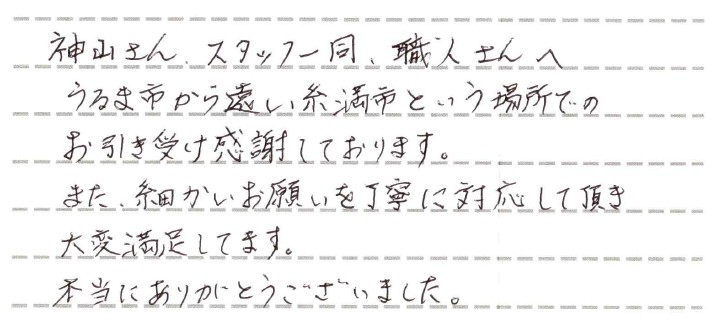 神山さん、スタッフ一同、職人さんへ
うるま市から遠い糸満市という場所での
お引き受け感謝しております。
また、細かいお願いを丁寧に対応して頂き
大変満足してます。
本当にありがとうございました。